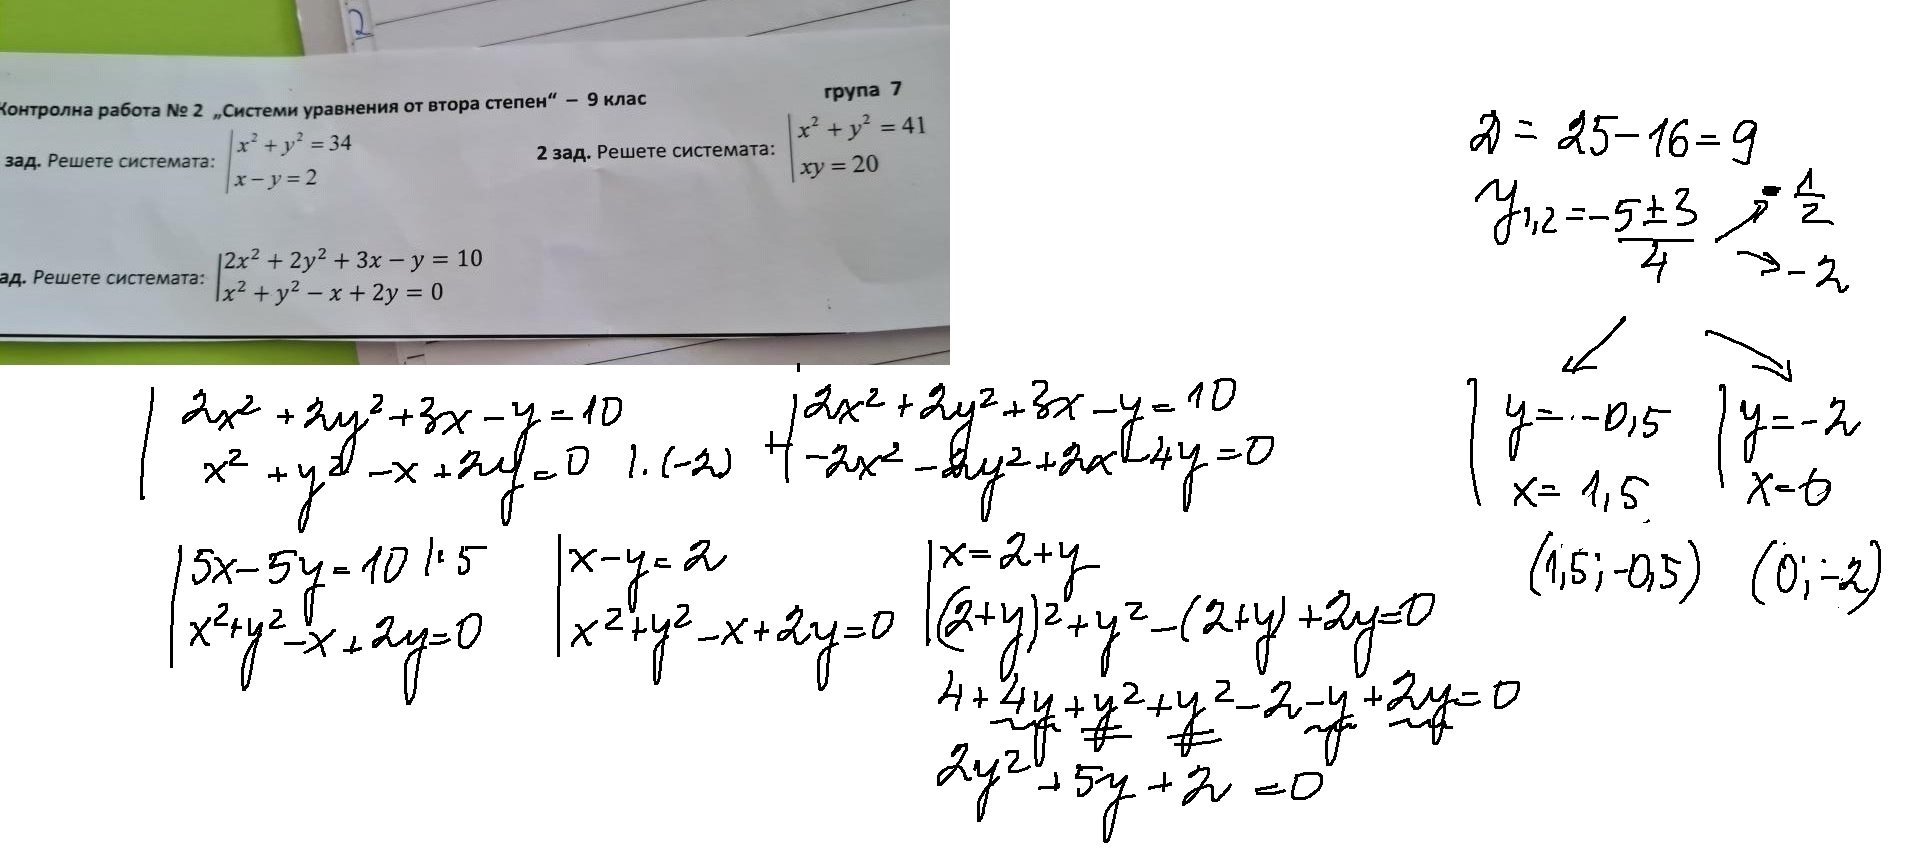 2
Контролна работа № 2 „Системи уравнения от втора степен“ – 9 клас
група 7
зад. Решете системата: x² + y² = 34
x − y = 2
2 зад. Решете системата: x² + y² = 41
xy = 20
ад. Решете системата: 2x² + 2y² + 3x − y = 10
x² + y² − x + 2y = 0
2x² + 2y² + 3x − y = 10
x² + y² − x + 2y = 0 |. (−2)
+ 2x² + 2y² + 3x − y = 10
−2x² − 2y² + 2x − 4y = 0
5x − 5y = 10 |: 5
x² + y² − x + 2y = 0
x − y = 2
x² + y² − x + 2y = 0
x = 2 + y
(2+y)² + y² − (2+y) + 2y = 0
4 + 4y + y² + y² − 2 − y + 2y = 0
2y² + 5y + 2 = 0
D = 25 − 16 = 9
y1,2 = −5 ± 3 / 4
− 1/2
− 2
y = −0,5
x = 1,5
(1,5; −0,5)
y = −2
x = 0
(0; −2)